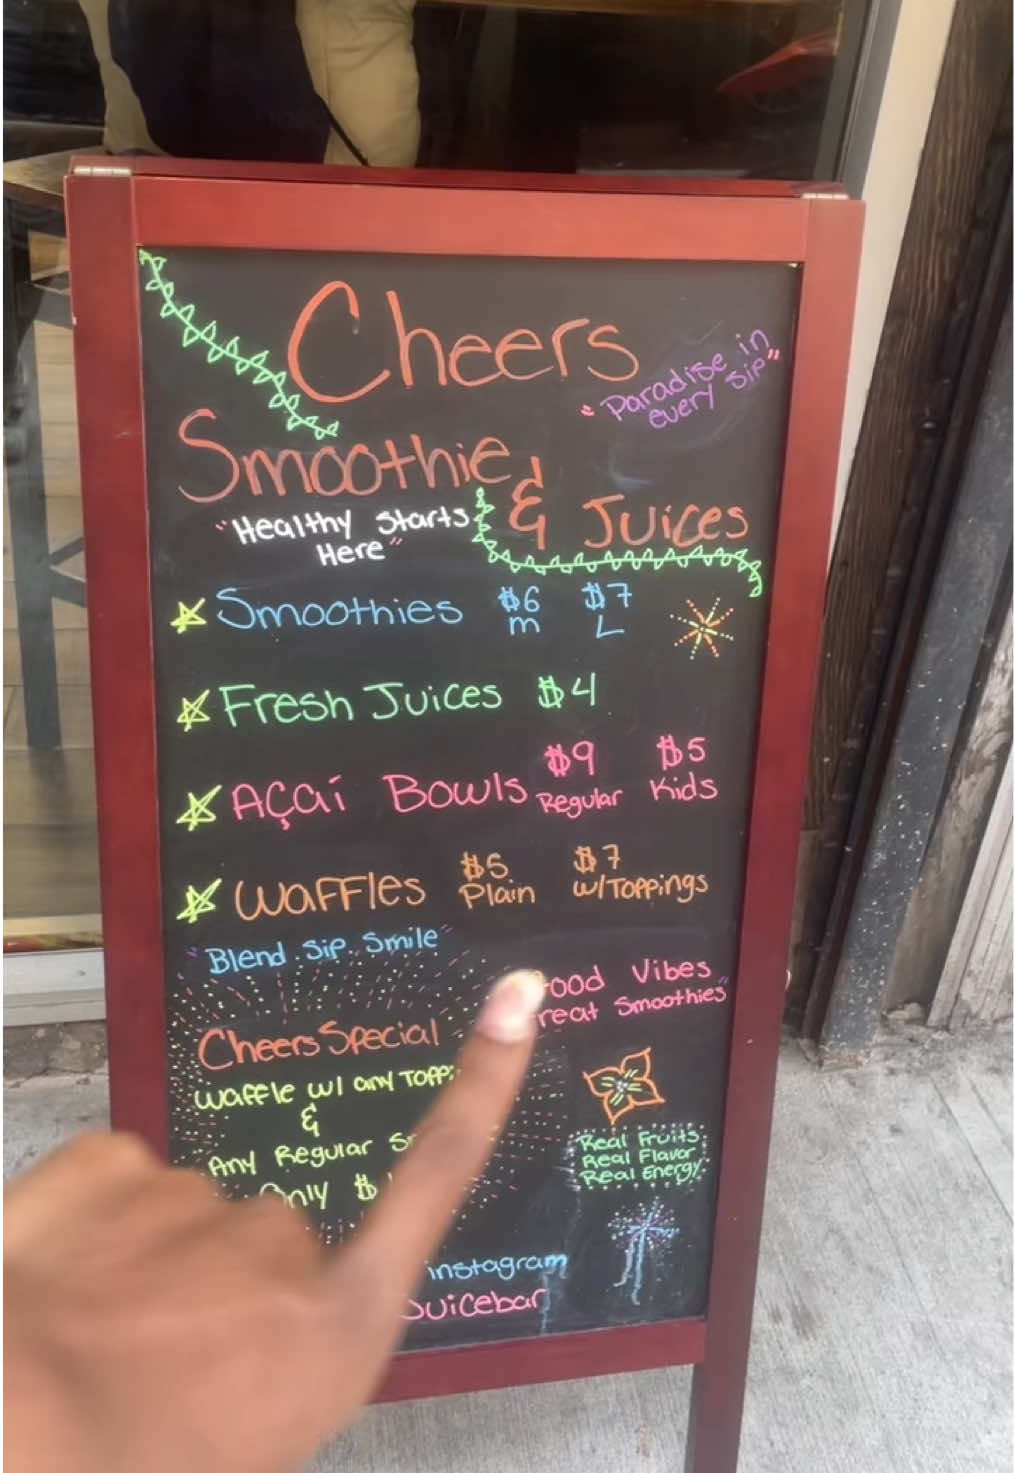 Cheers
"Paradise in
every sip"
Smoothie
& Juices
"Healthy Starts
Here"
Smoothies $6 $7
m L
Fresh Juices $4
Açaí Bowls $9 $5
Regular Kids
Waffles $5 $7
Plain w/Toppings
"Blend. Sip. Smile"
Vibes
Smoothies"
Cheers Special
Waffle w/ any
&
Any Regular
Only $
Real Fruits
Real Flavor
Real Energy
instagram
Juicebar